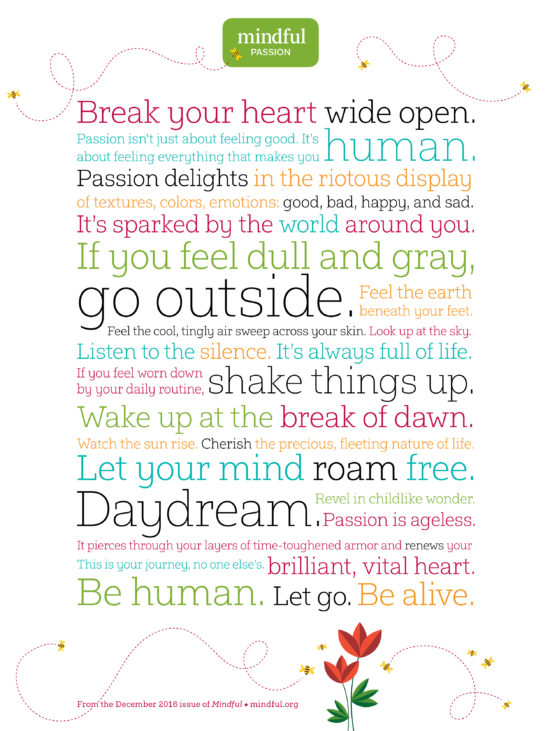 mindful
PASSION
Break your heart wide open.
Passion isn't just about feeling good. It's
about feeling everything that makes you human.
Passion delights in the riotous display
of textures, colors, emotions: good, bad, happy, and sad.
It's sparked by the world around you.
If you feel dull and gray,
go outside. Feel the earth
beneath your feet.
Feel the cool, tingly air sweep across your skin. Look up at the sky.
Listen to the silence. It's always full of life.
If you feel worn down
by your daily routine, shake things up.
Wake up at the break of dawn.
Watch the sun rise. Cherish the precious, fleeting nature of life.
Let your mind roam free.
Daydream. Revel in childlike wonder.
Passion is ageless.
It pierces through your layers of time-toughened armor and renews your
This is your journey, no one else's. brilliant, vital heart.
Be human. Let go. Be alive.
From the December 2016 issue of Mindful • mindful.org